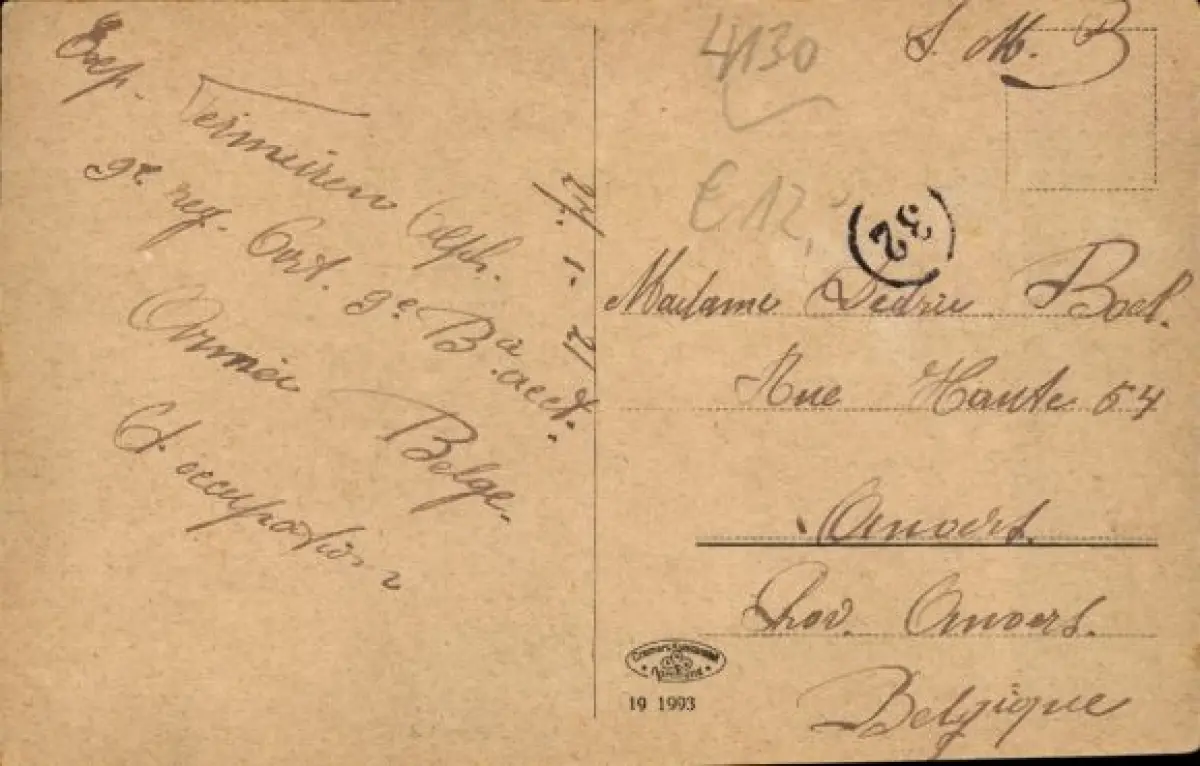 Exp. Vermeiren Alph.
9e reg. Art. 9e Ba. acct.
Armée Belge.
d'occupation
21.1.21
4130
€ 12,
S. M. B
32
Madame Dedrie Boel.
Rue Haute 54
Anvers.
Prov. Anvers.
Belgique
19 1993